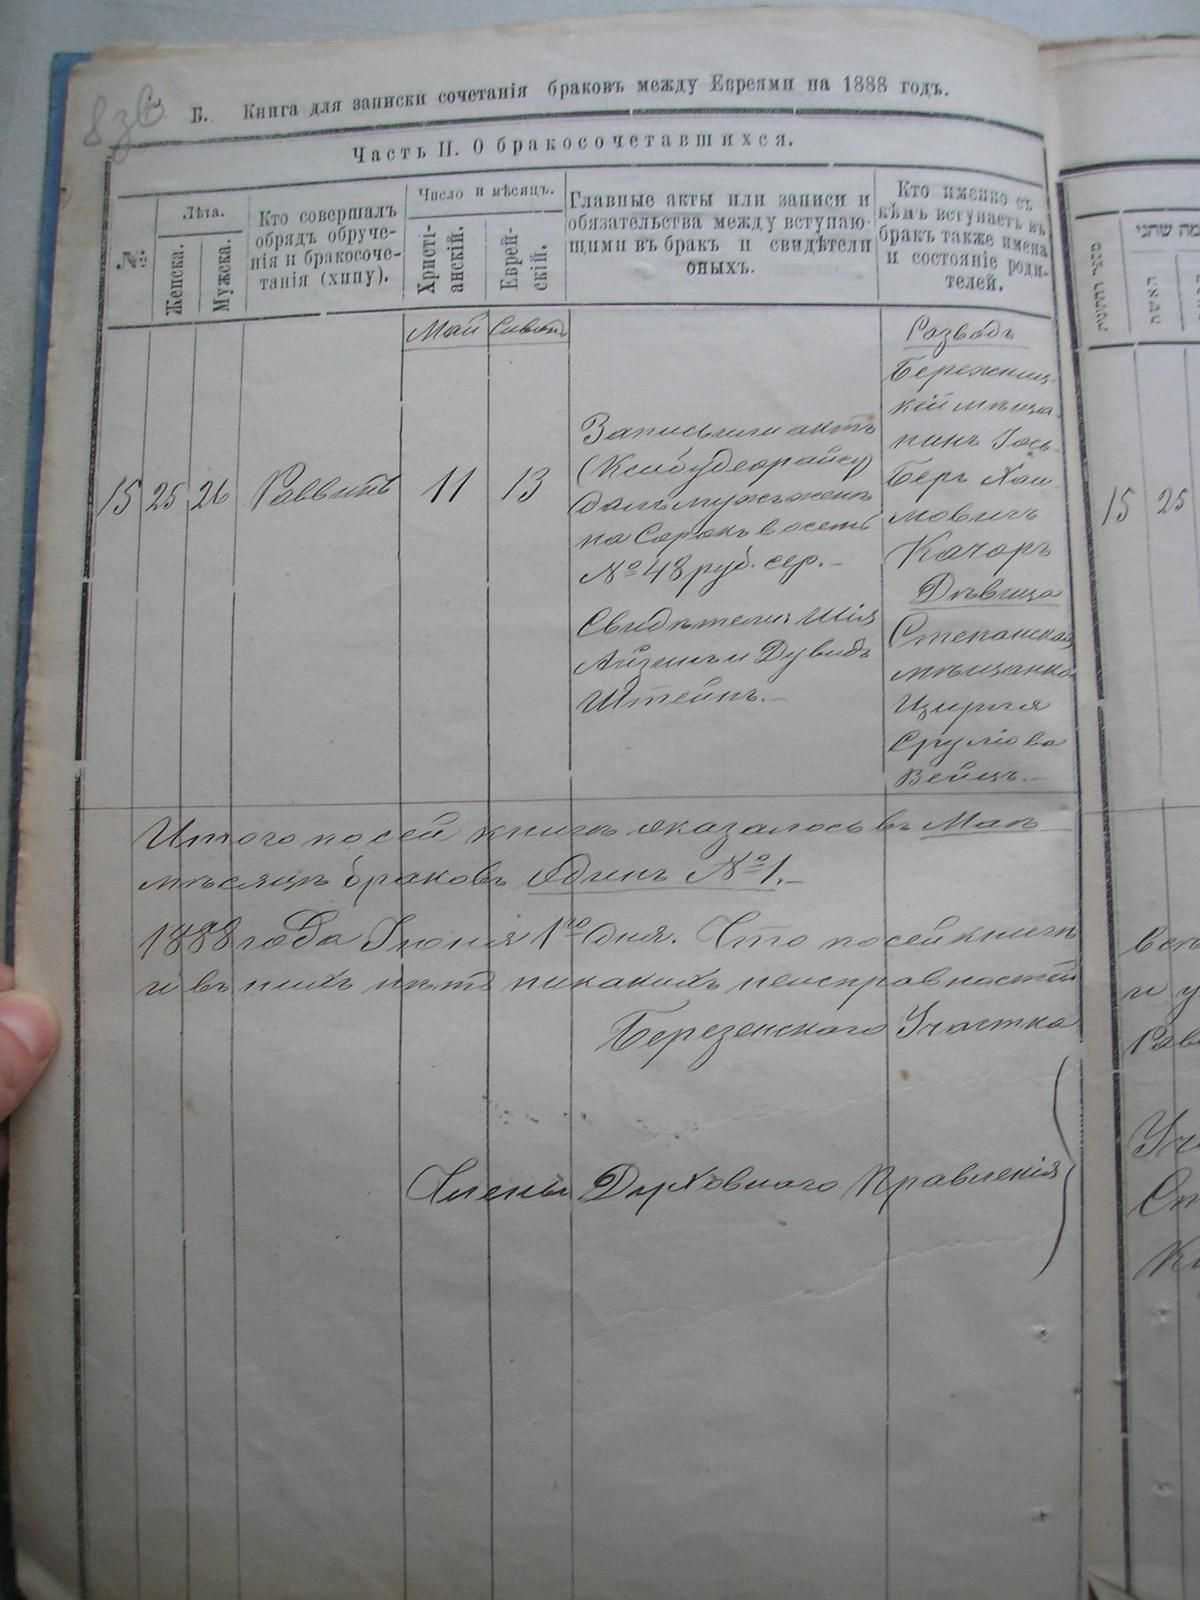 8 зв
Б. Книга для записки сочетанія браковъ между Евреями на 1888 годъ.
Часть II. О бракосочетавшихся.
№
Лѣта.
Женска.
Мужска.
Кто совершалъ
обрядъ обруче-
нія и бракосоче-
танія (хипу).
Число и мѣсяцъ.
Христі-
анскій.
Еврей-
скій.
Главные акты или записи и
обязательства между вступаю-
щими въ бракъ и свидѣтели
оныхъ.
Кто именно съ
кѣмъ вступаетъ въ
бракъ также имена
и состояніе роди-
телей.
Май
Сивонъ
15
25
26
Раввинъ
11
13
Записыли актъ
далъ мужъ женѣ
на Сорокъ восемь
№ 48 руб. сер.
Свидѣтели: Шія
Айзикъ и Дувидъ
Штейнъ.
Розводъ
Бережниц-
кій мѣща-
нинъ Іось-
Беръ Хаи-
мовичъ
Качоръ
Дѣвица
Степанская
мѣщанка
Цирля
Срулiова
Вейцъ.
Итого по сей книгѣ оказалось въ Маѣ
мѣсяцѣ браковъ одинъ № 1.
1888 года Іюня 1го дня. Что по сей книгѣ
и въ нихъ нѣтъ никакихъ неисправностей
Березенскаго Участка
Члены Духовнаго Правленія
15
25
и у